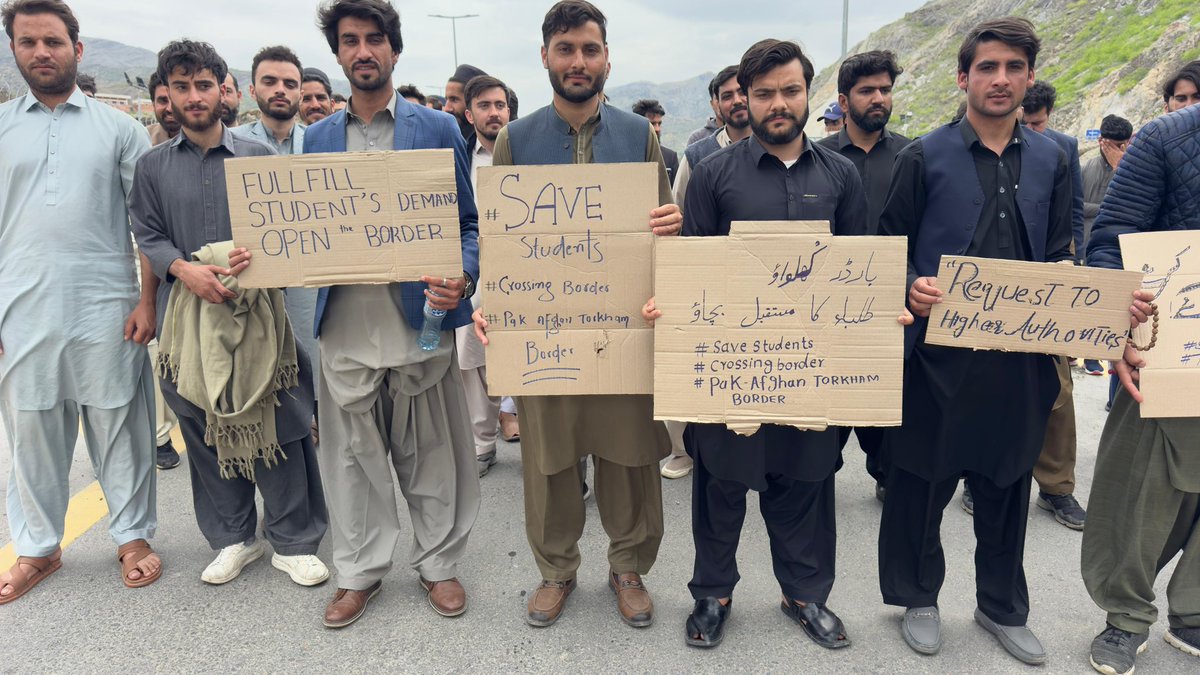 FULLFILL
STUDENT'S DEMAND
OPEN the BORDER
#SAVE
Students
#Crossing Border
#Pak Afgan Torkham
Border
بارڈر کھلواؤ
طلباء کا مستقبل بچاؤ
# Save Students
# Crossing border
# Pak-Afghan TORKHAM
BORDER
"Request To
Higher Authorities"